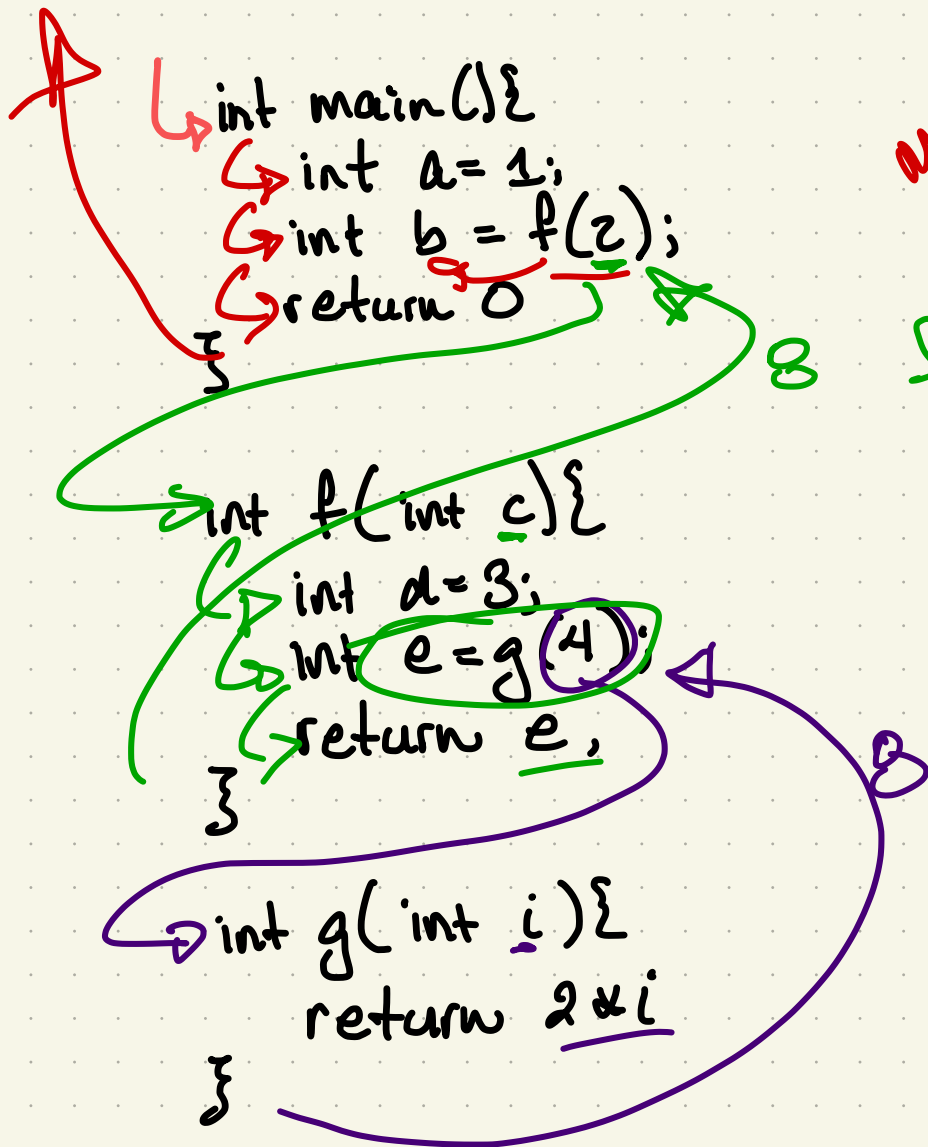 int main(){
int a = 1;
int b = f(2);
return 0
}
8
int f(int c){
int d = 3;
int e = g(4);
return e;
}
8
int g(int i){
return 2*i
}